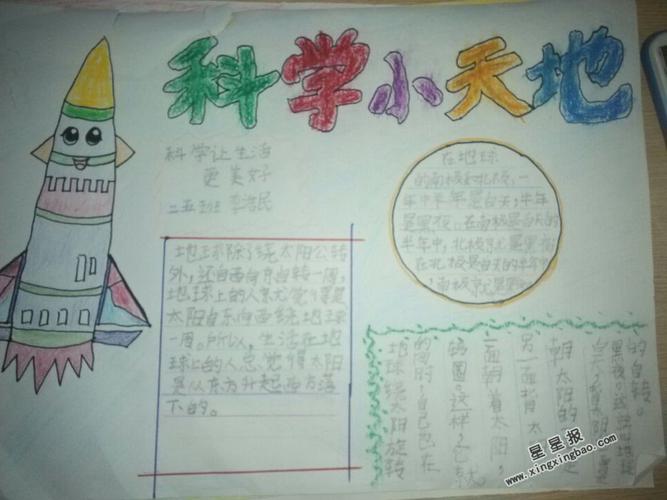 科学小天地
科学让生活
更美好
二五班 李浩民
在地球
的南极和北极,一
年中半年是白天,半年
是黑夜。在南极是白天的
半年中,北极就是黑夜
在北极是白天的半年中
,南极就是黑夜
地球除了绕太阳公转
外,还自西向东自转一周,
地球上的人就觉得是
太阳自东向西绕地球
一周。所以,生活在地
球上的人总觉得太阳
是从东方升起西方落
下的。
地球绕太阳旋转
的同时,自己也在
转圈。这样,它就
一面朝着太阳,
另一面背太
朝太阳的是
白天,背太阳是
黑夜。这就是地球
的自转。
星星报
www.xingxingbao.com